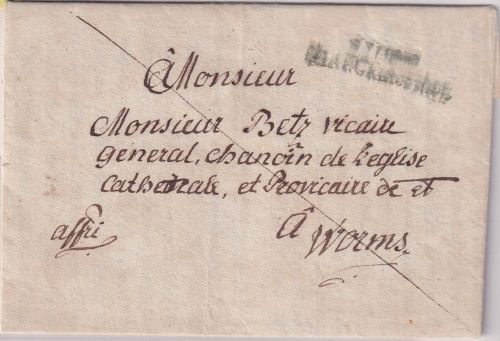 â Monsieur
Monsieur Betz vicaire
General, chanoin de l'eglise
Cathedrale, et Provicaire de et
affri
â
Worms